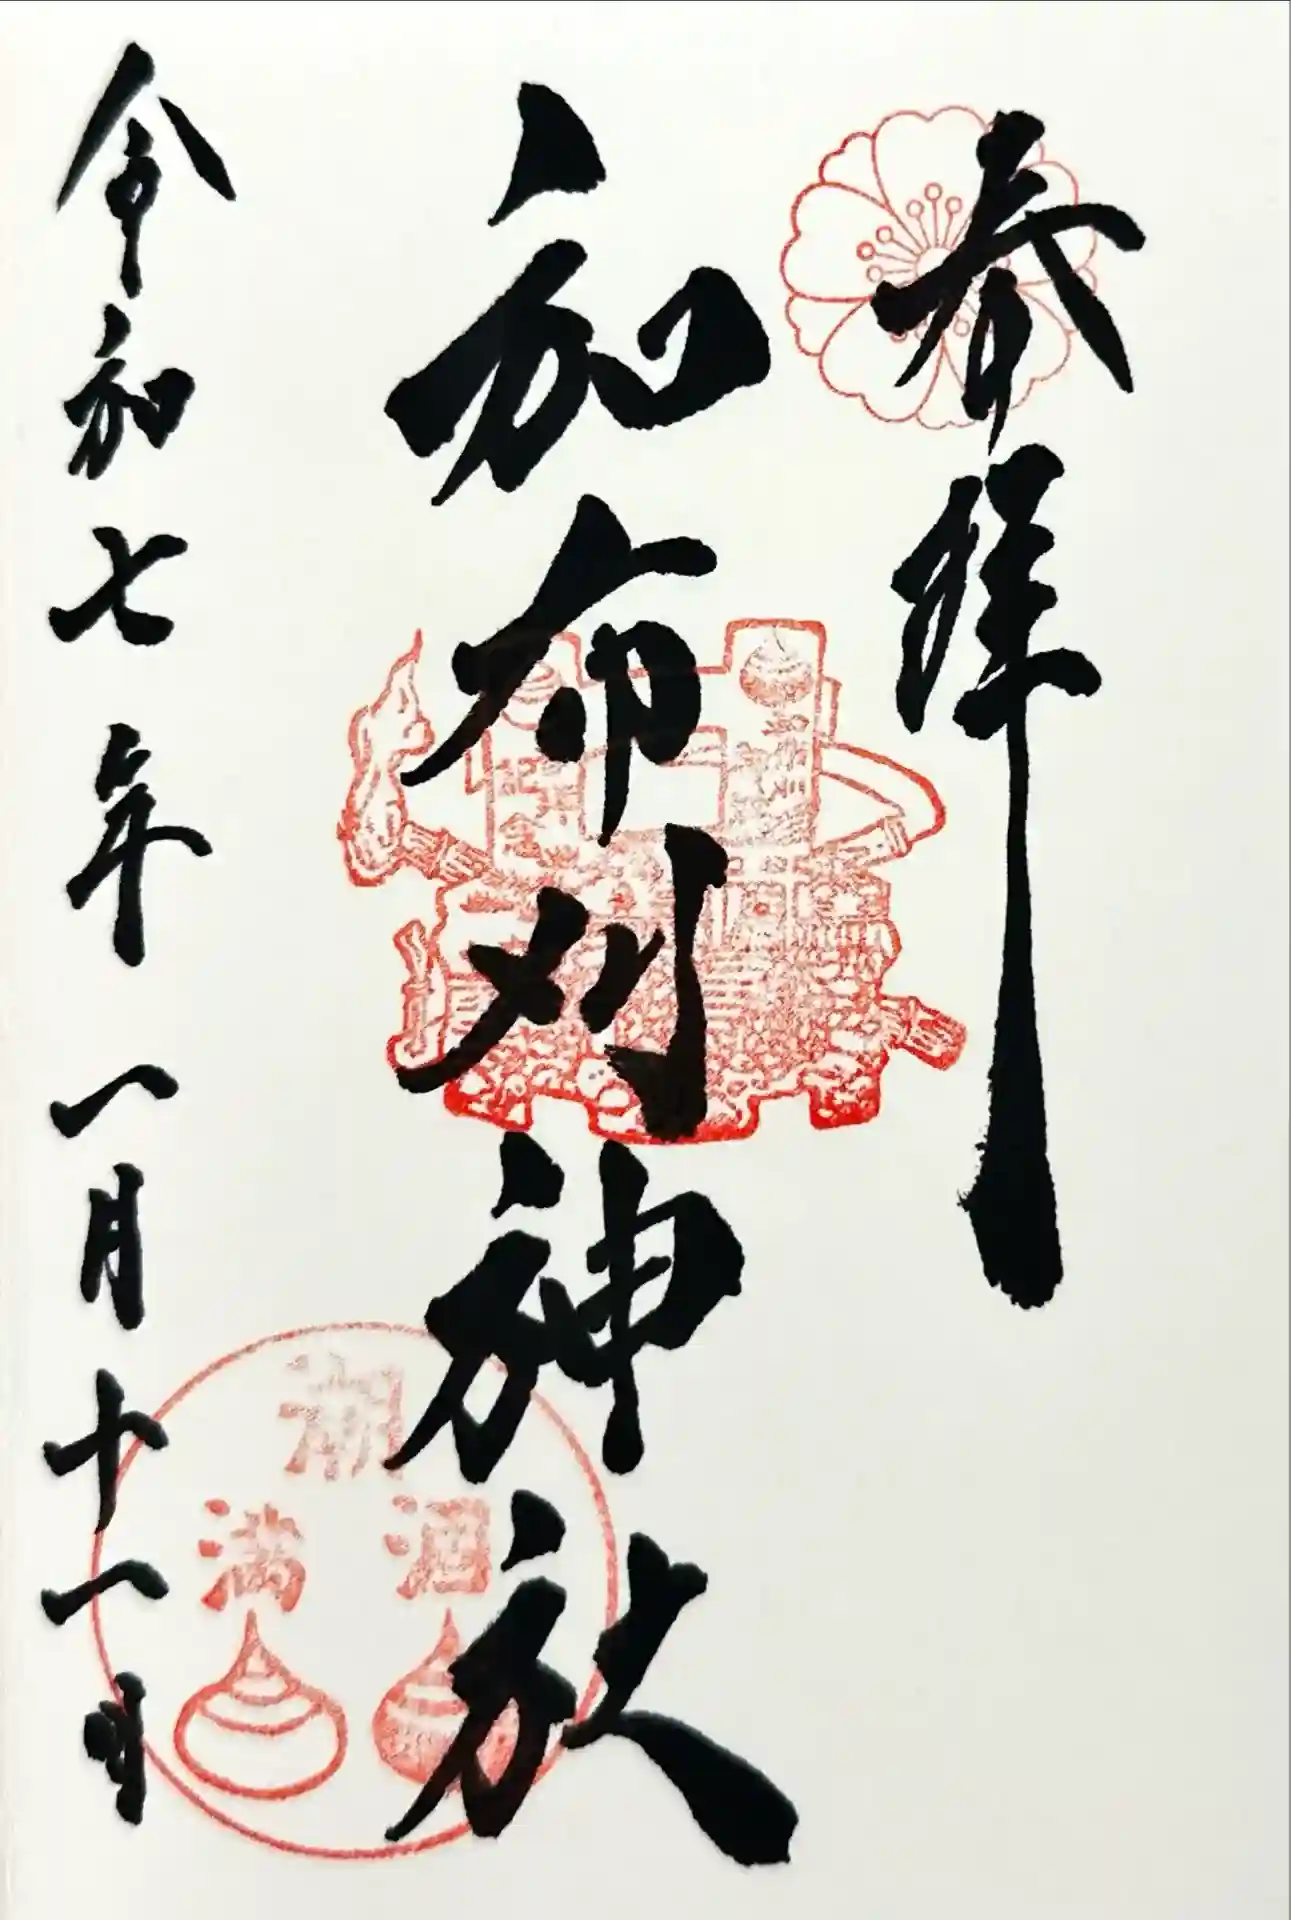 奉拝
和布刈神社
令和七年一月十一日
潮
涸
満